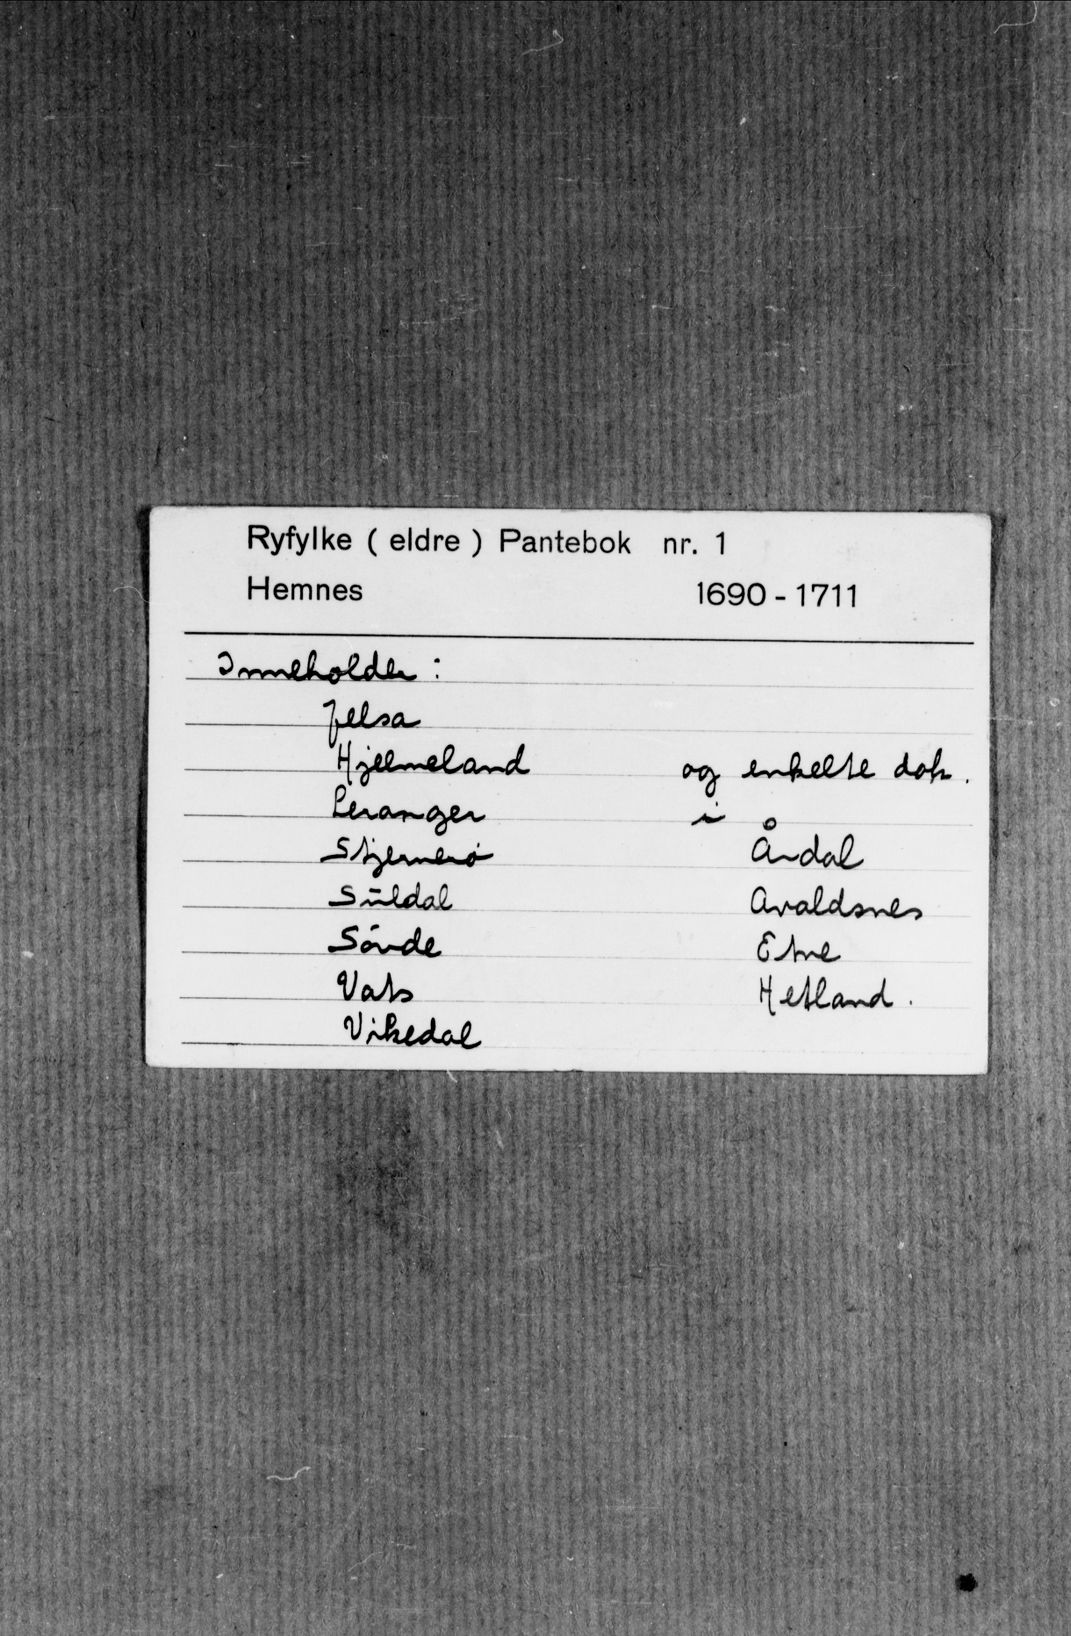 Ryfylke ( eldre ) Pantebok nr. 1
Hemnes 1690 - 1711
Inneholder :
Jelsa
Hjelmeland og enkelte dok.
Leranger i
Stjernerö Årdal
Suldal Avaldsnes
Sövde Etne
Vats Hetland .
Vikedal